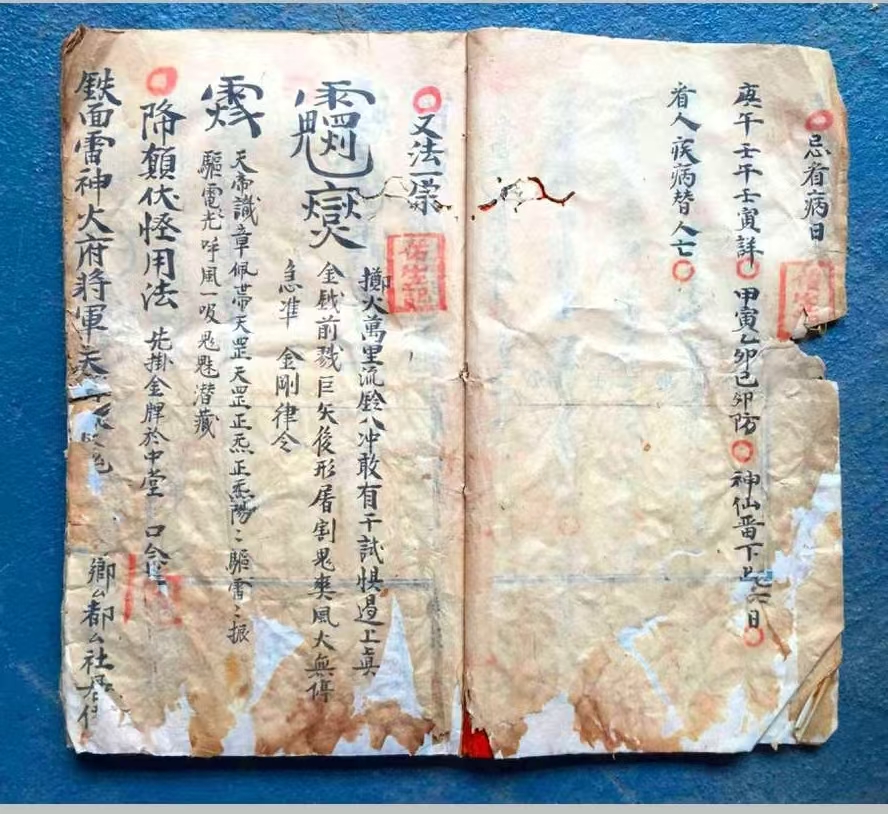 忌看病日
庚午壬午壬寅詳 甲寅乙卯己卯防 神仙畱下此六日
看人疾病替人亡
又法一宗
擲火萬里流鈴八冲敢有干試惧遏上眞
金戟前戮巨矢後形屠割鬼爽風火無停
急准 金剛律令
天帝識章佩带天罡天罡正炁正炁陽〻驅雷〻振
驅電光呼風一吸鬼魅潜藏
降顛伏怪用法 先掛金牌於中堂 口念
鉄面雷神火府將軍天 鄉公都公社